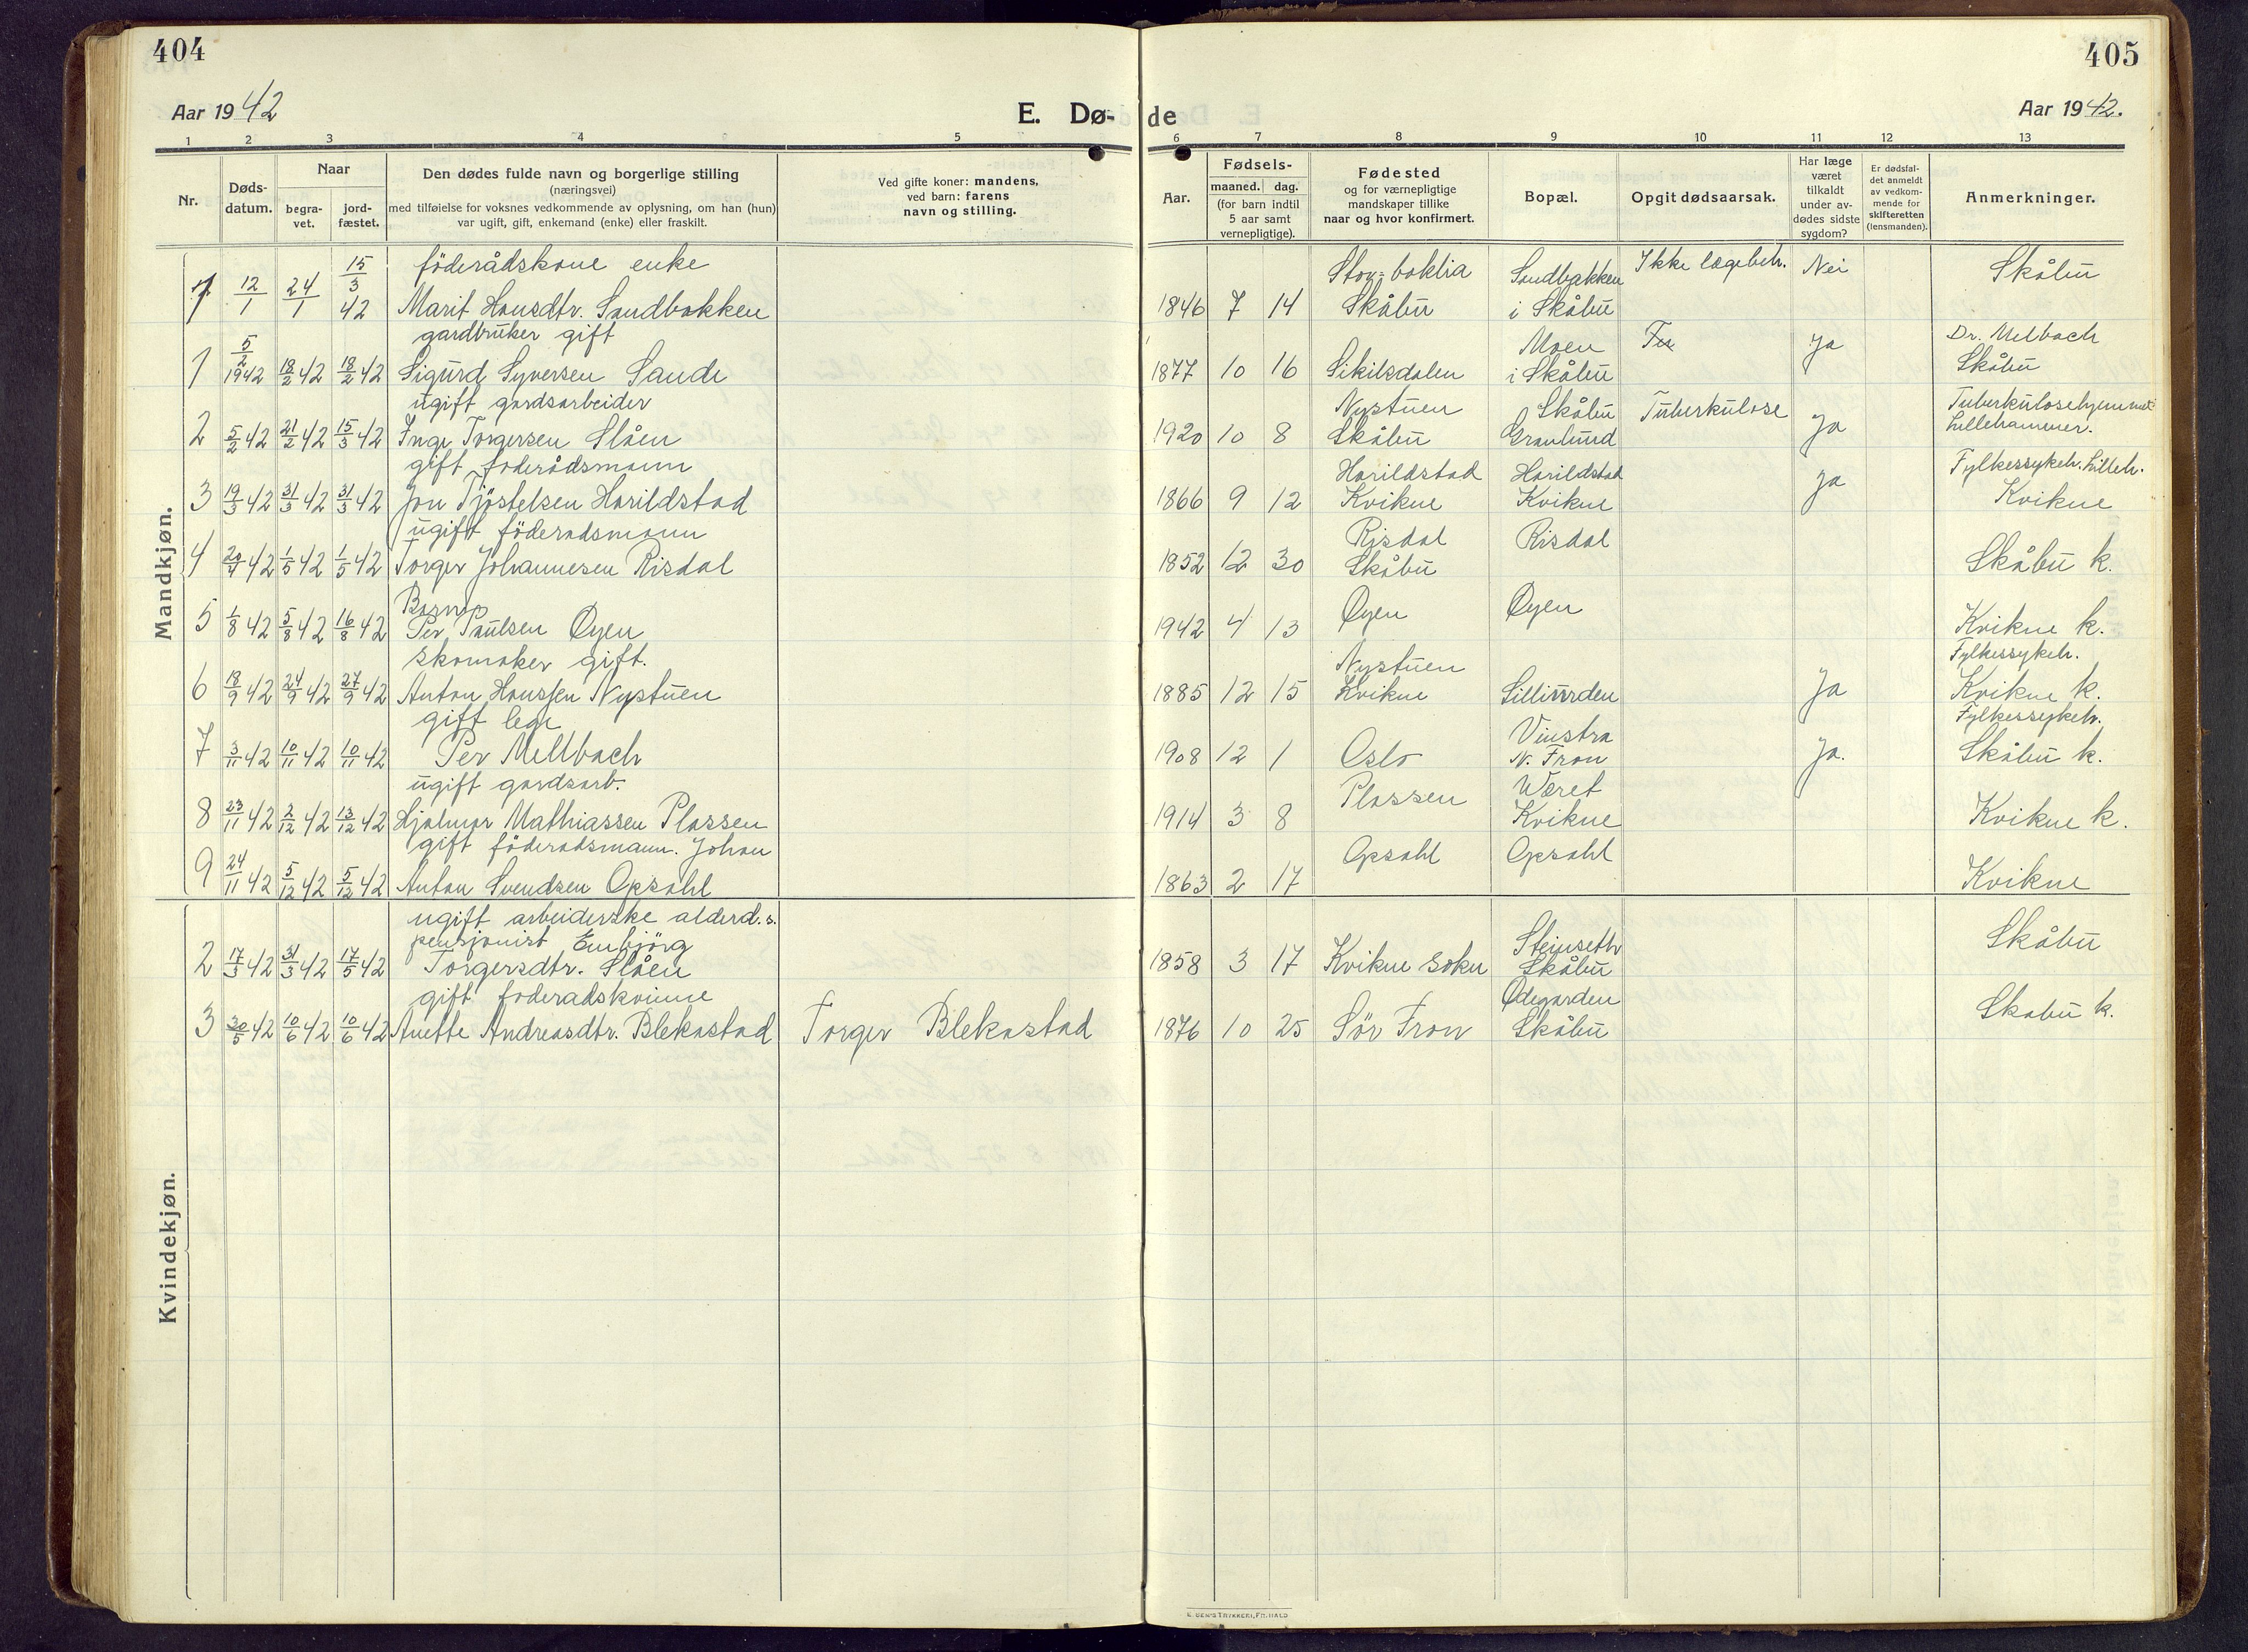 404
Aar 1942
E. Dø-
1 2 3 4 5
Nr.
Døds-
datum.
Naar
begra-
vet.
jord-
fæstet.
Den dødes fulde navn og borgerlige stilling
(næringsvei)
med tilføielse for voksnes vedkommende av oplysning, om han (hun)
var ugift, gift, enkemand (enke) eller fraskilt.
Ved gifte koner: mandens,
ved barn: farens
navn og stilling.
Mandkjøn.
föderådskone enke
1 12/1 24/1 15/3 42 Marit Hansdtr. Sandbakken
gardbruker gift
1 5/2 1942 18/2 42 18/2 42 Sigurd Syversen Sande
ugift gardsarbeider
2 5/2 42 21/2 42 15/3 42 Inge Torgersen Slåen
gift föderådsmann
3 19/3 42 31/3 42 31/3 42 Jon Tjöstelsen Harildstad
ugift föderadsmann
4 20/4 42 1/5 42 1/5 42 Torger Johannesen Risdal
Barnep
5 1/8 42 5/8 42 16/8 42 Per Paulsen Øyen
skomaker gift.
6 18/9 42 24/9 42 27/9 42 Anton Hanssen Nystuen
gift lege
7 3/11 42 10/11 42 10/11 42 Per Mellbach
ugift gardsarb.
8 23/11 42 2/12 42 13/12 42 Hjalmar Mathiassen Plassen
gift föderadsmann. Johan
9 24/11 42 5/12 42 5/12 42 Anton Svendsen Opsahl
Kvindekjøn.
ugift arbeiderske alderd.s.
pensjonist Embjörg
2 17/3 42 31/3 42 17/5 42 Torgersdtr. Slåen
gift foderadskvinne
3 30/5 42 10/6 42 10/6 42 Anette Andreasdtr. Blekastad Torger Blekastad
405
de
Aar 1942.
6 7 8 9 10 11 12 13
Aar.
Fødsels-
maaned. dag.
(for barn indtil
5 aar samt
vernepligtige).
Fødested
og for værnepligtige
mandskaper tillike
naar og hvor konfirmert.
Bopæl.
Opgit dødsaarsak.
Har læge
været
tilkaldt
under av-
dødes sidste
sygdom?
Er dødsfal-
det anmeldt
av vedkom-
mende for
skifteretten
(lensmanden).
Anmerkninger.
Stor-boklia Sandbakken Ikke lægebeh. Nei Skåbu
1846 7 14 Skåbu i Skåbu
Moen Tu Ja Dr. Melbach
1877 10 16 Sikilsdalen i Skåbu Skåbu
Nystuen Skåbu Tuberkulose Ja Tuberkulosehjemmet
1920 10 8 Skåbu Granlund Lillehammer.
Harildstad Harildstad Ja Fylkessykeh. Lilleh.
1866 9 12 Kvikne Kvikne Kvikne
Risdal Risdal
1852 12 30 Skåbu Skåbu k.
Øyen Øyen
1942 4 13 Kvikne k.
Nystuen Fylkessykeh.
1885 12 15 Kvikne Ja Kvikne k.
Vinstra Fylkessykeh.
1908 12 1 Oslo N. Fron Ja. Skåbu k.
Plassen Wæret
1914 3 8 Kvikne Kvikne k.
Opsahl Opsahl
1863 2 17 Kvikne
Steinseth Skåbu
1858 3 17 Kvikne sokn Skåbu
Ødegarden Skabu k.
1876 10 25 Sör Fron Skåbu